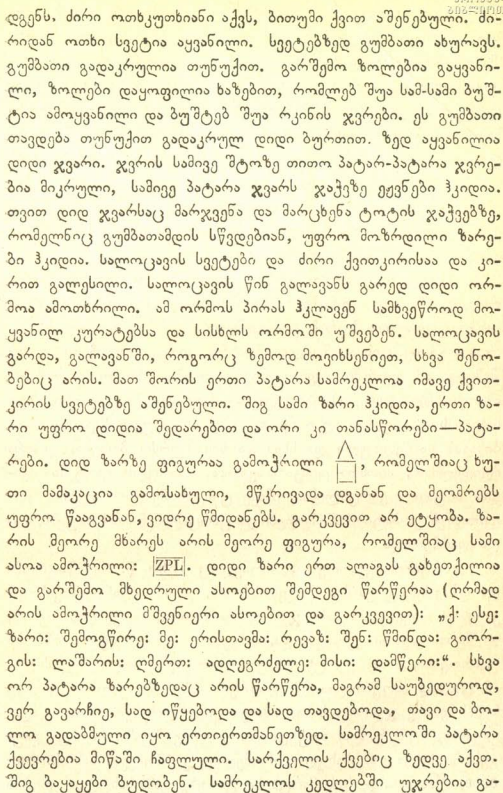 დგენს. ძირი ოთხკუთხიანი აქვს, ბითუმი ქვით აშენებული. ძი-
რიდან ოთხი სვეტია აყვანილი. სვეტებზედ გუმბათი ახურავს.
გუმბათი გადაკრულია თუნუქით. გარშემო ზოლებია გაყვანი-
ლი, ზოლები დაყოფილია ხაზებით, რომლებ შუა სამ-სამი ბუშ-
ტია ამოყვანილი და ბუშტებ შუა რკინის ჯვრები. ეს გუმბათი
თავდება თუნუქით გადაკრულ დიდი ბურთით. ზედ აყვანილია
დიდი ჯვარი. ჯვრის სამივე შტოზე თითო პატარ-პატარა ჯვრე-
ბია მიკრული, სამივე პატარა ჯვარს ჯაჭვზე ეჟვნები ჰკიდია.
თვით დიდ ჯვარსაც მარჯვენა და მარცხენა ტოტის ჯაჭვებზე,
რომელნიც გუმბათამდის სწვდებიან, უფრო მოზრდილი ზარე-
ბი ჰკიდია. სალოცავის სვეტები და ძირი ქვითკირისაა და კი-
რით გალესილი. სალოცავის წინ გალავანს გარედ დიდი ორ-
მოა ამოთხრილი. ამ ორმოს პირას ჰკლავენ სამხვეწროდ მო-
ყვანილ კურატებსა და სისხლს ორმოში უშვებენ. სალოცავის
გარდა, გალავანში, როგორც ზემოდ მოვიხსენიეთ, სხვა შენო-
ბებიც არის. მათ შორის ერთი პატარა სამრეკლოა იმავე ქვით-
კირის სვეტებზე აშენებული. შიგ სამი ზარი ჰკიდია, ერთი ზა-
რი უფრო დიდია შედარებით და ორი კი თანასწორები—პატა-
რები. დიდ ზარზე ფიგურაა გამოჭრილი , რომელშიაც ხუ-
თი მამაკაცია გამოსახული, მწკრივადა დგანან და მეომრებს
უფრო წააგვანან, ვიდრე წმიდანებს. გარკვევით არ ეტყობა. ზა-
რის მეორე მხარეს არის მეორე ფიგურა, რომელშიაც სამი
ასოა ამოჭრილი: ZPL. დიდი ზარი ერთ ალაგას გახეთქილია
და გარშემო მხედრული ასოებით შემდეგი წარწერაა (ღრმად
არის ამოჭრილი მშვენიერი ასოებით და გარკვევით): „ქ: ესე:
ზარი: შემოგწირე: მე: ერისთავმა: რევაზ: შენ: წმინდა: გიორ-
გის: ლაშარის: ღმერთ: ადღეგრძელე: მისი: დამწერი:“. სხვა
ორ პატარა ზარებზედაც არის წარწერა, მაგრამ საუბედუროდ,
ვერ გავარჩიე, სად იწყებოდა და სად თავდებოდა, თავი და ბო-
ლო გადაბმული იყო ერთიერთმანეთზედ. სამრეკლოში პატარა
ქვევრებია მიწაში ჩაფლული. სარქველის ქვებიც ზედვე აქვთ.
შიგ ბაყაყები ბუდობენ. სამრეკლოს კედლებში უჯრებია გა-